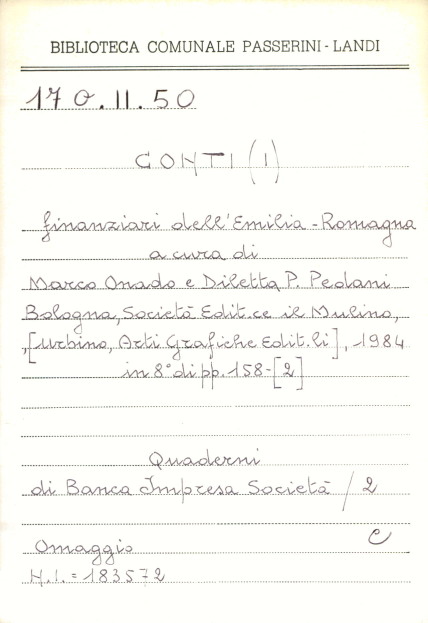 BIBLIOTECA COMUNALE PASSERINI-LANDI
170.II.50
CONTI (I)
finanziari dell'Emilia-Romagna
a cura di
Marco Onado e Diletta P. Pedani
Bologna, Società Edit.ce il Mulino,
,[Urbino, Arti Grafiche Edit.li], 1984
in 8° di pp. 158-[2]
Quaderni
di Banca Impresa Società / 2
C
Omaggio
N.I. = 183572